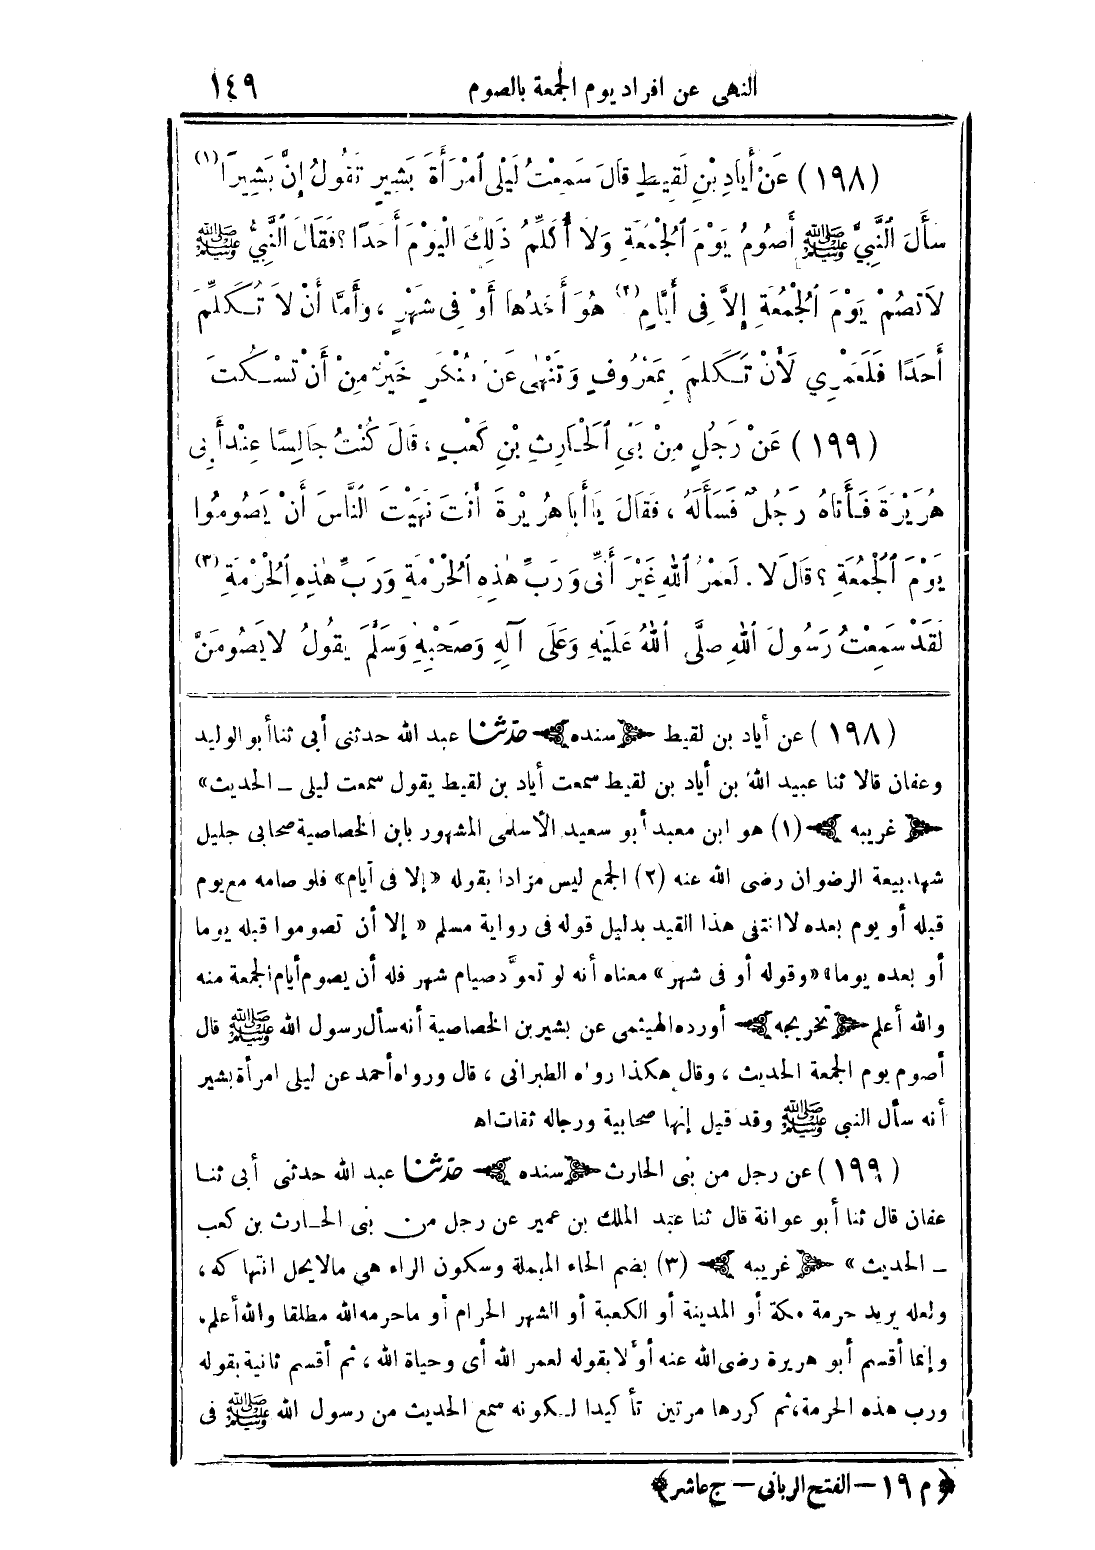 النهى عن افراد يوم الجمعة بالصوم ١٤٩
(١٩٨) عَنْ أَيادِ بْنِ لَقِيطٍ قالَ سَمِعْتُ لَيْلى امْرَأَةَ بَشِيرٍ تَقُولُ إِنَّ بَشِيرًا (١)
سَأَلَ النَّبِيَّ ﷺ أَصُومُ يَوْمَ الْجُمُعَةِ وَلا أُكَلِّمُ ذَلِكَ الْيَوْمَ أَحَدًا؟ فَقَالَ النَّبِيُّ ﷺ
لاَ تَصُمْ يَوْمَ الْجُمُعَةِ إِلاَّ فِى أَيَّامٍ (٢) هُوَ أَحَدُها أَوْ فِى شَهْرٍ، وَأَمَّا أَنْ لاَ تُكَلِّمَ
أَحَدًا فَلَعَمْرِي لَأَنْ تَكَلَّمَ بِمَعْرُوفٍ وَتَنْهٰى عَنْ مُنْكَرٍ خَيْرٌ مِنْ أَنْ تَسْكُتَ
(١٩٩) عَنْ رَجُلٍ مِنْ بَنِي الْحَارِثِ بْنِ كَعْبٍ، قَالَ كُنْتُ جَالِسًا عِنْدَ أَبِى
هُرَيْرَةَ فَأَتاهُ رَجُلٌ فَسَأَلَهُ، فَقَالَ يَا أَبا هُرَيْرَةَ أَنْتَ نَهَيْتَ النَّاسَ أَنْ يَصُومُوا
يَوْمَ الْجُمُعَةِ؟ قَالَ لا. لَعَمْرُ اللهِ غَيْرَ أَنِّى وَرَبِّ هٰذِهِ الْحُرْمَةِ وَرَبِّ هٰذِهِ الْحُرْمَةِ (٣)
لَقَدْ سَمِعْتُ رَسُولَ اللهِ صلَّى اللهُ عَلَيْهِ وَعَلَى آلِهِ وَصَحْبِهِ وَسَلَّمَ يَقُولُ لا يَصُومَنَّ
(١٩٨) عن أياد بن لقيط ﴿سنده﴾ حدثنا عبد الله حدثنى أبى ثنا أبو الوليد
وعفان قالا ثنا عبيد الله بن أياد بن لقيط سمعت أياد بن لقيط يقول سمعت ليلى ــ الحديث»
﴿غريبه﴾ (١) هو ابن معبد أبو سعيد الأسلمى المشهور بابن الخصاصية صحابى جليل
شهد بيعة الرضوان رضى الله عنه (٢) الجمع ليس مرادا بقوله «إلا فى أيام» فلو صامه مع يوم
قبله أو يوم بعده لانتفى هذا القيد بدليل قوله فى رواية مسلم «إلا أن تصوموا قبله يوما
أو بعده يوما» «وقوله أو فى شهر» معناه أنه لو تعوَّد صيام شهر فله أن يصوم أيام الجمعة منه
والله أعلم ﴿تخريجه﴾ أورده الهيثمى عن بشير بن الخصاصية أنه سأل رسول الله ﷺ قال
أصوم يوم الجمعة الحديث، وقال هكذا رواه الطبرانى، قال ورواه أحمد عن ليلى امرأة بشير
أنه سأل النبى ﷺ وقد قيل إنها صحابية ورجاله ثقات اه
(١٩٩) عن رجل من بنى الحارث ﴿سنده﴾ حدثنا عبد الله حدثنى أبى ثنا
عفان قال ثنا أبو عوانة قال ثنا عبد الملك بن عمير عن رجل من بنى الحارث بن كعب
ــ الحديث» ﴿غريبه﴾ (٣) بضم الحاء المهملة وسكون الراء هى مالا يحل انتهاكه،
ولعله يريد حرمة مكة أو المدينة أو الكعبة أو الشهر الحرام أو ما حرمه الله مطلقا والله أعلم.
وإنما أقسم أبو هريرة رضى الله عنه أولا بقوله لعمر الله أى وحياة الله، ثم أقسم ثانية بقوله
ورب هذه الحرمة، ثم كررها مرتين تأكيدا لكونه سمع الحديث من رسول الله ﷺ فى
﴿م ١٩ – الفتح الربانى – ج عاشر﴾